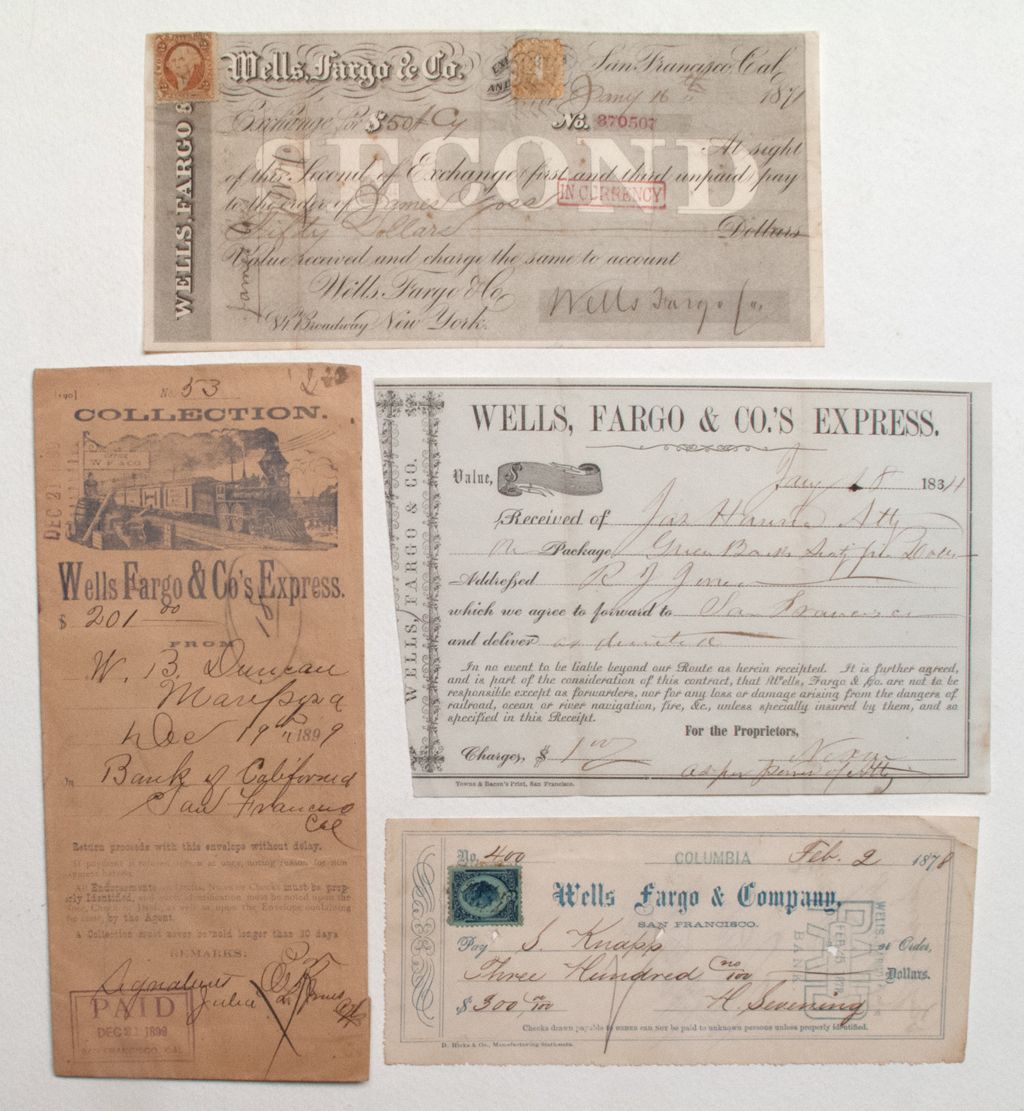 Wells, Fargo & Co.
San Francisco, Cal.
Jany 16 1871
WELLS, FARGO &
Exchange for $50 Cy
No. 370507
SECOND
At sight
of this Second of Exchange (first and third unpaid) pay
IN CURRENCY
to the order of James Goss
Fifty Dollars Dollars
Value received and charge the same to account
Wells, Fargo & Co
84 Broadway New York.
Wells Fargo Co
[190] No. 53
COLLECTION.
W F & CO
DEC 21
Wells Fargo & Co's Express.
$ 201 00
FROM
W. B. Duncan
Mariposa
Dec 19th 1899
Bank of California
San Francisco
Cal
Return proceeds with this envelope without delay.
If payment is refused return at once, noting reason for non
payment hereon.
must be prop-
erly Identified,
by the Agent.
a Collection must never be held longer than 30 days
REMARKS:
Signatures
PAID
DEC 21 1899
SAN FRANCISCO, CAL.
WELLS, FARGO & CO.'S EXPRESS.
WELLS, FARGO & CO.
Value, $
Jany 8 18
Received of Jas
Package Green Backs Dolls
Addressed R
which we agree to forward to San Francisco
and deliver as directed
In no event to be liable beyond our Route as herein receipted. It is further agreed,
and is part of the consideration of this contract, that Wells, Fargo & Co. are not to be
responsible except as forwarders, nor for any loss or damage arising from the dangers of
railroad, ocean or river navigation, fire, &c., unless specially insured by them, and so
specified in this Receipt.
For the Proprietors,
Charges, $ 1 00
as per power of Atty
Towne & Bacon's Print, San Francisco.
No. 400 COLUMBIA Feb. 2 1878
Wells Fargo & Company,
SAN FRANCISCO.
Pay S. Knapp or Order,
Three Hundred no/100 Dollars.
$ 300 no/100 H. Sevening
PAID
BANK
Checks drawn payable to names can not be paid to unknown persons unless properly identified.
D. Hicks & Co., Manufacturing Stationers.